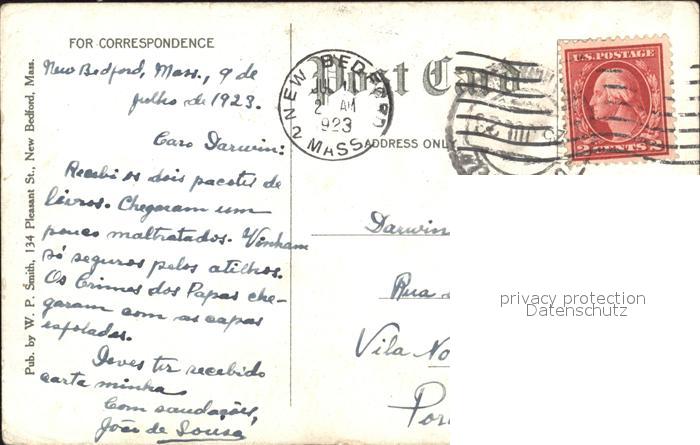 FOR CORRESPONDENCE
New Bedford, Mass., 9 de
julho de 1923.
Caro Darwin:
Recebi os dois pacotes de
livros. Chegaram um
pouco maltratados. Vinham
só seguros pelos atilhos.
Os Crimes dos Papas che-
garam com as capas
esfoladas.
Deves ter recebido
carta minha
Com saudações,
João de Sousa
Pub. by W. P. Smith, 134 Pleasant St., New Bedford, Mass.
Post Card
ADDRESS ONLY
NEW BEDFORD
2 AM
1923
MASS.
2
U.S. POSTAGE
2 CENTS 2
Darwin
Rua
Vila No
Por
privacy protection
Datenschutz